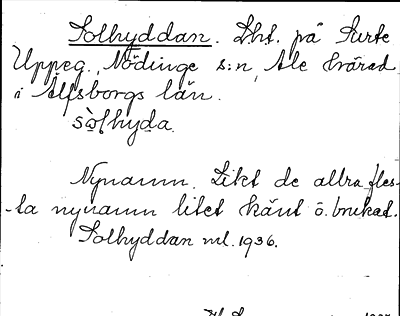 Solhyddan. Lht. på Surte
Uppeg., Nödinge s:n, Ale härad
i Älfsborgs län.
sò̀lhyda.
Nynamn. Likt de allra fles-
-ta nynamn litet känt o. brukat.
Solhyddan ml. 1936.